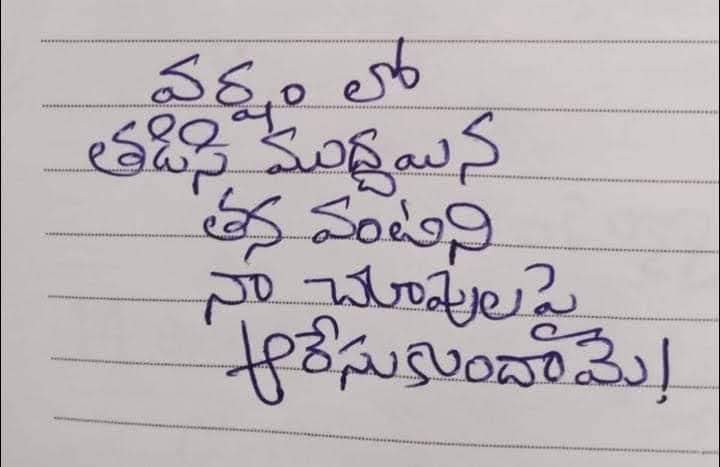 వర్షం లో
తడిసి ముద్దయిన
తన వంటిని
నా చూపులపై
ఆరేసుకుందామె!